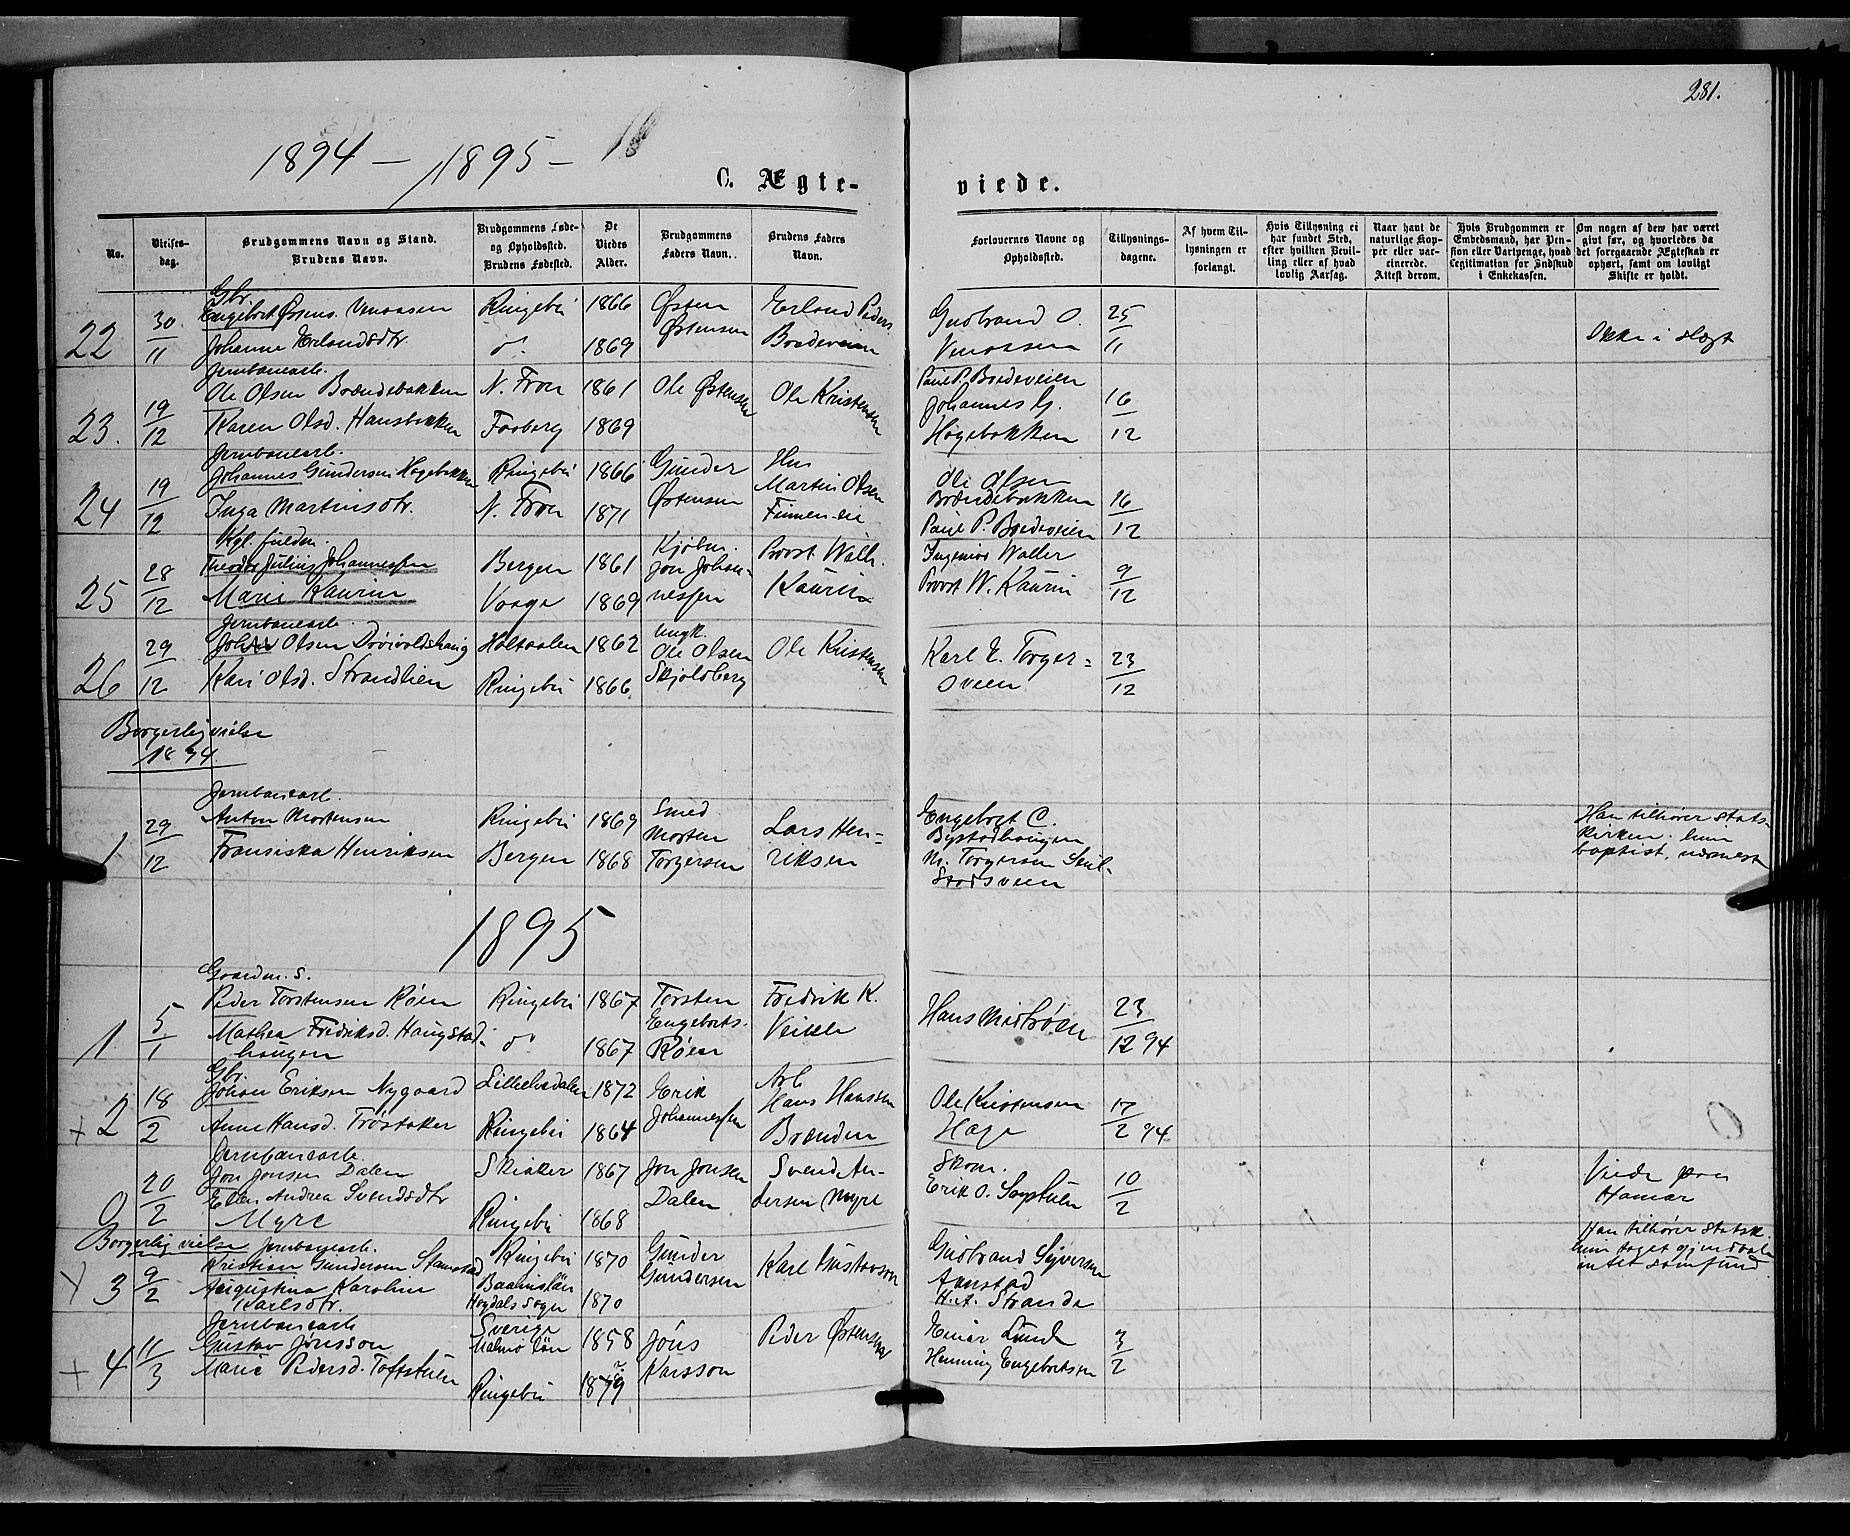 281.
1894 - 1895 -
C. Ægte-
viede.
No.
Vielses-
dag.
Brudgommens Navn og Stand.
Brudens Navn.
Brudgommens Føde-
og Opholdssted.
Brudens Fødested.
De
Viedes
Alder.
Brudgommens
Faders Navn.
Brudens Faders
Navn.
Forlovernes Navne og
Opholdssted.
Tillysnings-
dagene.
Af hvem Til-
lysningen er
forlangt.
Hvis Tillysning ei
har fundet Sted,
efter hvilken Bevil-
ling eller af hvad
lovlig Aarsag.
Naar havt de
naturlige Kop-
per eller vac-
cinerede.
Attest derom.
Hvis Brudgommen er
Embedsmand, har Pen-
sion eller Vartpenge, hvad
Legitimation for Indskud
i Enkekassen.
Om nogen af dem har været
givt før, og hvorledes da
det foregaaende Ægteskab er
ophørt, samt om lovligt
Skifte er holdt.
22
30/11
Gbr.
Engebret Østens.
Johanne Erlandsdtr.
Ringebu
do
1866
1869
Østen
Østensen
Erland Peders.
Brædeveien
Gudbrand O.
25/11
Ikke i Slægt
23.
19/12
Jernbanearb.
Ole Olsen Brændebakken
Karen Olsd. Hansbakken
N. Fron
Faaberg
1861
1869
Ole Østensen
Ole Kristensen
Paul P. Brædeveien
Johannes G.
Høgebakken
16/12
24
19/12
Jernbanearb.
Johannes Gundersen Høgebakken
Inga Martinsdtr.
Ringebu
N. Fron
1866
1871
Gunder
Østensen
Hus
Martin Olsen
Ole Olsen
Brændebakken
Paul P. Brædeveien
16/12
25
28/12
Kgl. fuldm.
Theodor Julius Johannessen
Marie Kaurin
Bergen
Vaage
1861
1869
Kjøbm.
Jon Johan-
nessen
Provst Walth.
Kaurin
Ingemar Walter
Provst W. Kaurin
9/12
26
29/12
Jernbanearb.
Johan Olsen Drøivoldshaug
Kari Olsd. Strandlien
Holtaalen
Ringebu
1862
1866
Ungk.
Ole Olsen
Skjoldberg
Ole Kristensen
Karl E. Torger-
sveen
23/12
Borgerlig vielse
1894.
1
29/12
Jernbanearb.
Anton Mortensen
Fransiska Henriksen
Ringebu
Bergen
1869
1868
Smed
Morten
Torgersen
Lars Hen-
riksen
Engebret C.
Bystadhaugen
M. Torgersen Skul-
stadsveen
Han tilhører stats-
kirken, hun
baptist, nærmest
1895
1
5/1
Gaardm. s.
Peder Torstensen Røen
Mathea Fredriksd. Haugstad-
haugen
Ringebu
do
1867
1867
Torsten
Engebrets.
Røen
Fredrik K.
Veikle
Hans Midtrøen
23/12 94
+ 2
18/2
Gbr.
Johan Eriksen Nygaard
Anne Hansd. Trøstaker
Lilleelvedalen
Ringebu
1872
1864
Erik
Johannessen
Arb
Hans Hanssen
Brænden
Ole Kristensen
Hage
17/2 94
0
20/2
Jernbanearb.
Jon Jonsen Dalen
Ellen Andrea Svendsdtr
Myre
Skiaker
Ringebu
1867
1868
Jon Jonsen
Dalen
Svend An-
dersen Myre
Skom.
Erik O.
10/2
Viede paa
Hamar
Borgerlig vielse
3
9/2
Jernbanearb.
Kristian Gundersen Stamstad
Augustina Karolin
Karlsdtr.
Ringebu
Høgdals sogn
1870
1870
Gunder
Gundersen
Karl Gustavson
Gudbrand Syversen
Aanstad
H. A. Strande
Han tilhører statsk.
hun
intet samfund.
+ 4
11/3
Jernbanearb
Gustav Jønsson
Marie Pedersd. Toftstuen
Sverige
Malmø län
Ringebu
1858
1879
Jøns
Karsson
Peder Østensen
Einar Lunde
Henning Engebretsen
3/2